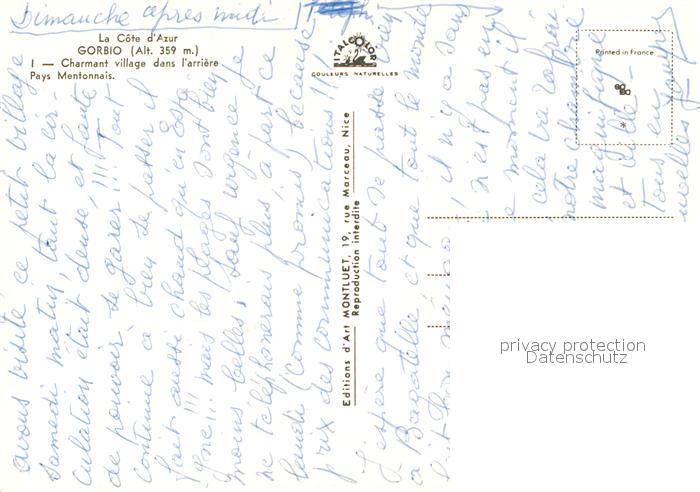 Dimanche après midi
La Côte d'Azur
GORBIO (Alt. 359 m.)
I — Charmant village dans l'arrière
Pays Mentonnais.
ITALCOLOR
COULEURS NATURELLES
Printed in France
Editions d'Art MONTLUET, 19, rue Marceau, Nice
Reproduction interdite
avons visité ce petit village
samedi matin, tant la cir
culation était dense, et faute
de pouvoir se garer !!! Tout
continue à bien se passer il
fait aussi chaud qu'en
!!! mais les plages sont bien
moins belles, sauf urgence je
ne téléphonerais plus, à part ce
lundi (comme promis)
prix des communications !!!
J'espère que tout se passe bien
à Bagatelle, et que tout le monde
il n'y a dans
n'est pas en
ce moment il
cela va
notre chambre
magnifique
et
tous en
nouvelles
privacy protection
Datenschutz